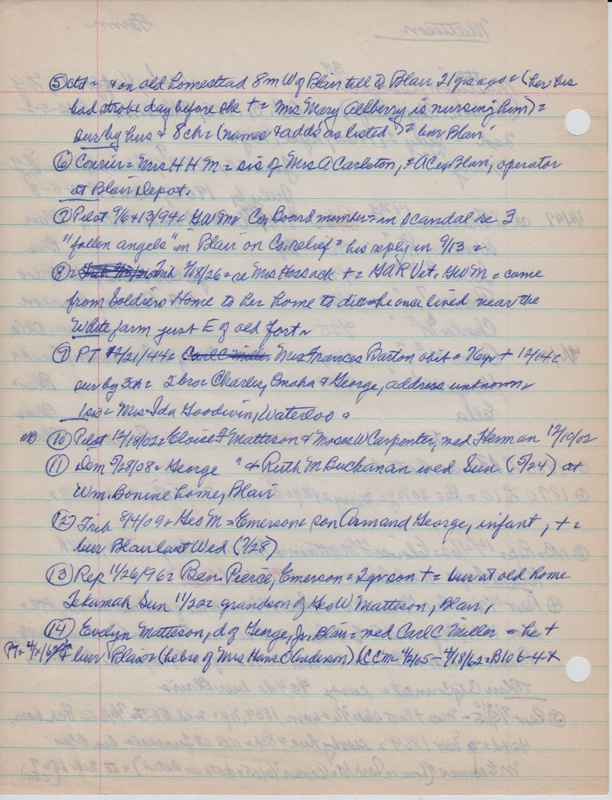 ⑤ ctd = & on old homestead 8 m W of Blair till to Blair 21 yrs ago = (her hus
had stroke day before she + = Mrs Mary Allberry is nursing him) =
sur by hus & 8 ch = (names & adds as listed) = bur Blair
⑥ Courier = Mrs H H M = sis of Mrs A Carlston, = A C ex Blair, operator
at Blair Depot.
⑦ Pilot 9/6 & 13/94 = GW M Co Board member = in scandal re 3
"fallen angels" in Blair on Co relief = his reply in 9/13 =
⑧ Trib 18/26 = re Mrs Hossack + = GAR Vet, GW M = came
from Soldiers Home to her home to die = he once lived near the
White farm just E of old fort ~
⑨ PT 12/21/44 = Carl C Miller Mrs Frances Barton obit = + 12/14 =
sur by 3 ch = 2 bro = Charles, Omaha & George, address unknown,
1 sis = Mrs Ida Goodwin, Waterloo =
⑩ Pilot 12/18/02 = Eloise F Matteson & Moses W Carpenter, wed Herman 12/10/02
⑪ Dem 5/28/08 = George " & Ruth M Buchanan wed Sun (5/24) at
Wm. Bonine home, Blair
⑫ Trib 8/4/09 = Geo M = Emerson = son Armand George, infant, + =
bur Blair last Wed (7/28)
⑬ Rep 11/26/96 = Ben Pierce, Emerson = 2 yr son + = bur at old home
Tekamah Sun 11/22 = grandson of Geo W Matteson, Blair,
⑭ Evelyn Matteson, d of George, Jr. Blair = wed Carl C Miller = he +
& bur Blair = (he bro of Mrs Hans O Anderson) (CCM = 4/2/05 – 4/18/62 = B106-4x
Matteson